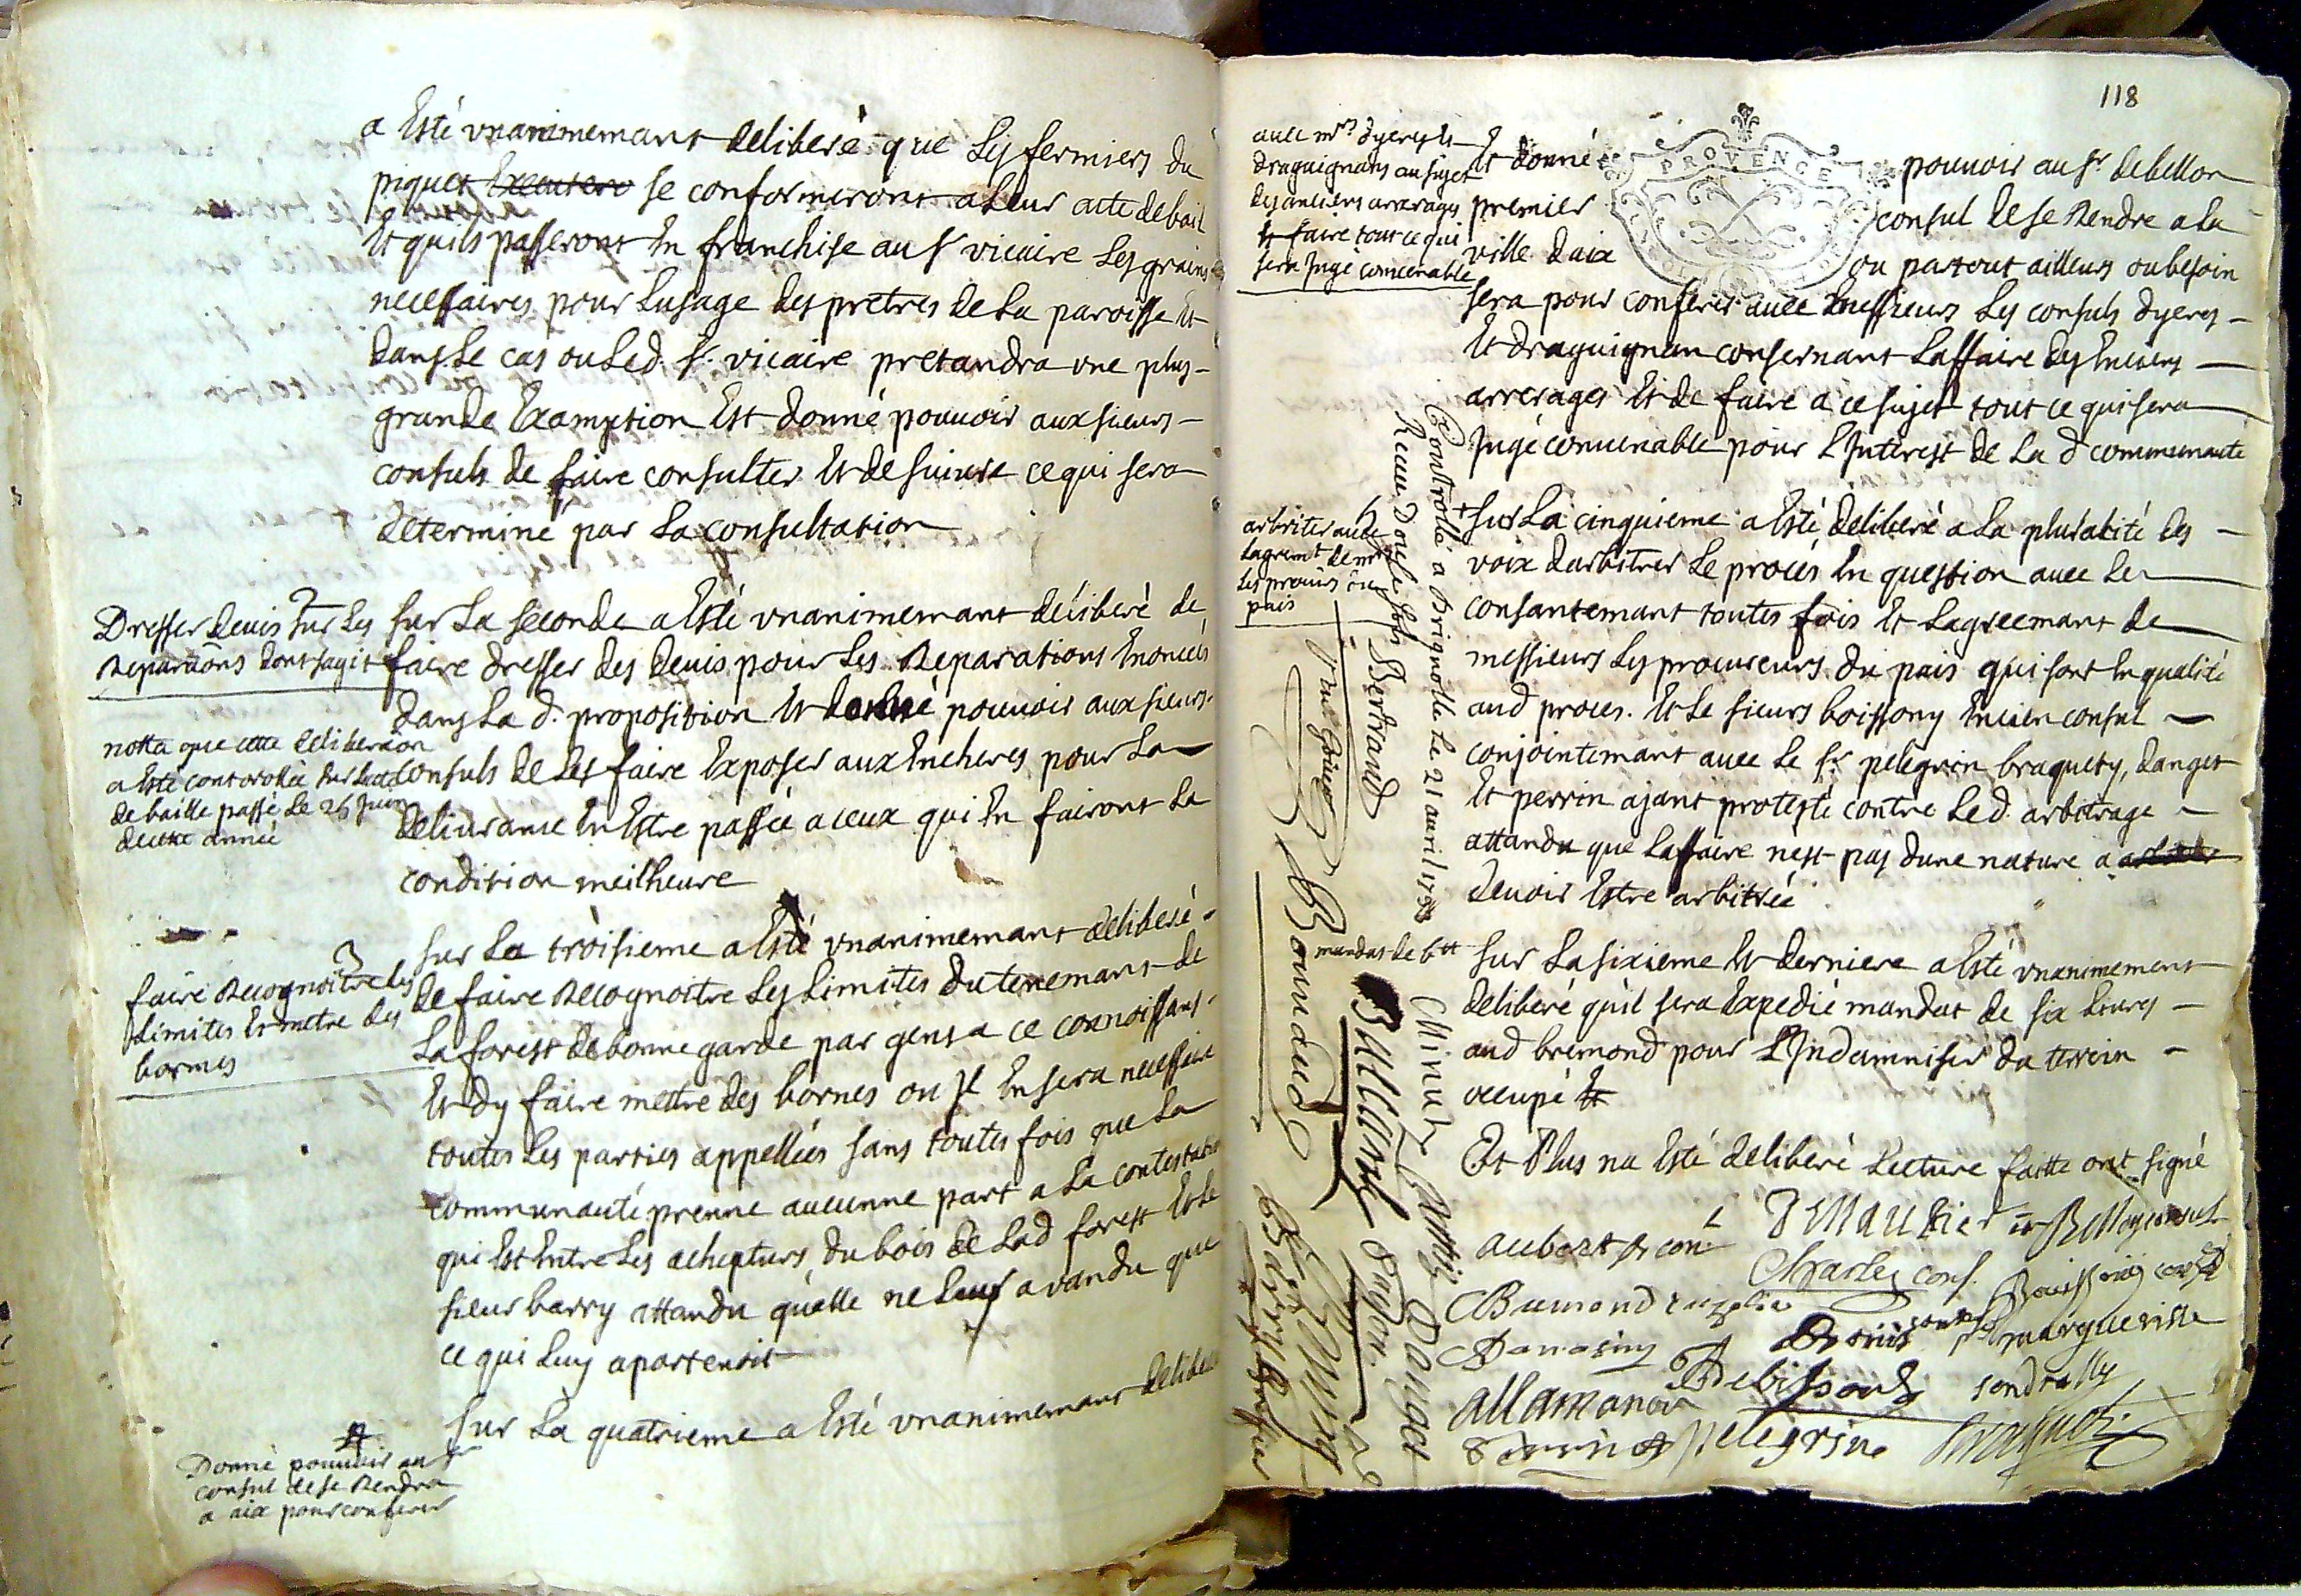 a Esté vnanimemant deliberé que Les fermiers du
piquet Executero se conformeront a Leur acte de bail
Et quils passeront En franchise au sr vicaire Les grains
necessaires pour Lusage des pretres de La paroisse Et
dans Le cas ou Led. sr. vicaire pretandra vne plus
grande Examption Est donné pouuoir aux sieurs
consuls de faire consulter Et de suiure ce qui sera
determiné par La consultation
2
Dresser deuis sur Les
Reparaõns dont sagit
sur La seconde a Esté vnanimemant deliberé de
faire dresser des deuis pour Les Reparations Enoncées
dans La d. proposition Et donné pouuoir aux sieurs
consuls de Les faire Exposer aux Encheres pour La
deliurance En Estre passée a ceux qui En fairont La
condition meilheure
notta que cette deliberaõn
a Esté controllée sur Lacte
de baille passé Le 26 Juin
de cette année
3
faire Recognoitre les
Limites Et metre des
bornes
sur La troisieme a Esté vnanimemant deliberé
de faire Recognoitre Les Limites du tenemant de
La forest de bonnegarde par gens a ce connoissans
Et dy faire mettre des bornes ou Il En sera necessaire
toutes Les parties appellées sans toutes fois que La
communauté prenne aucunne part a La contestation
qui Est Entre Les achepturs du bois de Lad forest Et Le
sieur barry attandu quelle ne Leur a vandu que
ce qui Luy apartenoit
4
Donné pouuoir au sr
consul de se Rendre
a aix pour conferer
sur La quatrieme a Esté vnanimemant deliberé
118
auec mrs dyeres Et
draguignans au sujet
des anciens arrerages
Et faire tout ce qui
sera Jugé conuenable
PROVENCE
Et donné pouuoir au sr. debellon
premier consul de se Rendre a La
ville daix ou partout ailleurs ou besoin
sera pour conferer auec messieurs Les consuls dyeres
Et draguignan consernant Laffaire des Enciens
arrerages Et de faire a ce sujet tout ce qui sera
Jugé conuenable pour LInterest de La d communauté
5
arbitrer auec
Lagremt de mrs
Les procurs du
pais
sur La cinquieme a Esté deliberé a La pluralité des
voix darbitrer Le procés En question auec Le
consantemant toutes fois Et Lagreemant de
messieurs Les procureurs du pais qui sont En qualité
aud proces. Et Le sieurs boissony Encien consul
conjointemant auec Le sr pelegrin braquety, danget
Et perrin ajant protesté contre Led. arbitrage
attandu que Laffaire nest pas dune nature a
deuoir Estre arbitrée
mandat de 6 tt
sur La sixieme Et derniere a Esté vnanimement
deliberé quil sera Expedié mandat de six Liures
aud bremond pour LIndamniser du terrein
occupé
Et Plus na Esté deliberé Lecture faitte ont signé
Controllé a Brignolle Le 21 auril 1793
Receu Douse sols Bertrand
aubert
Charles cons.
allamanon
perrin
pelegrin
marguerisse
Bounaud
Danget